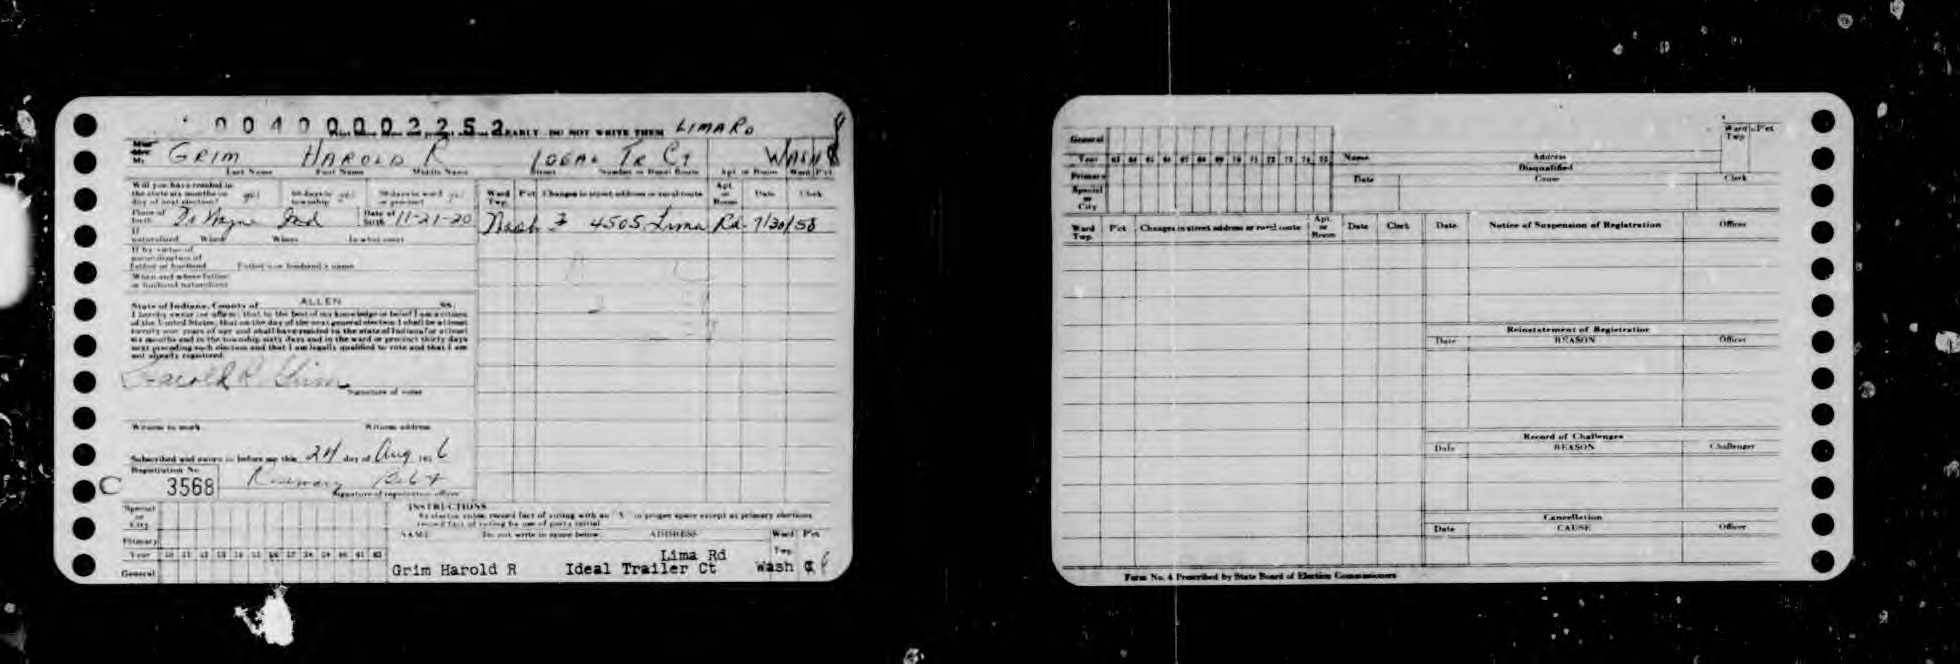 00400002252 EARLY DO NOT WRITE THEM LIMA RD
Mr. GRIM HAROLD R IDEAL TR CT WASH 8
Last Name First Name Middle Name Street Number or Rural Route Apt. or Room Ward Pct
Will you have resided in the state six months on day of next election? yes 60 days in township yes 30 days in ward or precinct yes
Ward Twp. Pct Changes in street address or rural route Apt. or Room Date Clerk
Place of birth Ft Wayne Ind Date of birth 11-21-20
Wash 3 4505 Lima Rd. 7/30/58
If naturalized When Where In what court
If by virtue of naturalization of Father or husband Father's or husband's name
When and where father or husband naturalized
State of Indiana, County of ALLEN SS:
I hereby swear (or affirm) that to the best of my knowledge or belief I am a citizen
of the United States; that on the day of the next general election I shall be at least
twenty one years of age and shall have resided in the state of Indiana for at least
six months and in the township sixty days and in the ward or precinct thirty days
next preceding such election and that I am legally qualified to vote and that I am
not already registered.
Harold R. Grim
Signature of voter
Witness to mark Witness address
Subscribed and sworn to before me this 24 day of Aug 195 6
Registration No.
C 3568 Rosemary
Signature of registration officer
Special or City
Primary
Year 50 51 52 53 54 55 56 57 58 59 60 61 62
General
INSTRUCTIONS
As elector votes, record fact of voting with an "X" in proper space except at primary elections
record fact of voting by use of party initial
NAME Do not write in space below. ADDRESS Ward Twp. Pct
Lima Rd
Grim Harold R Ideal Trailer Ct Wash 8
General
Year 63 64 65 66 67 68 69 70 71 72 73 74 75
Primary
Special or City
Name Address Ward Twp. Pct
Disqualified
Date Cause Clerk
Ward Twp. Pct Changes in street address or rural route Apt. or Room Date Clerk
Date Notice of Suspension of Registration Officer
Reinstatement of Registration
Date REASON Officer
Record of Challenges
Date REASON Challenger
Cancellation
Date CAUSE Officer
Form No. 4 Prescribed by State Board of Election Commissioners